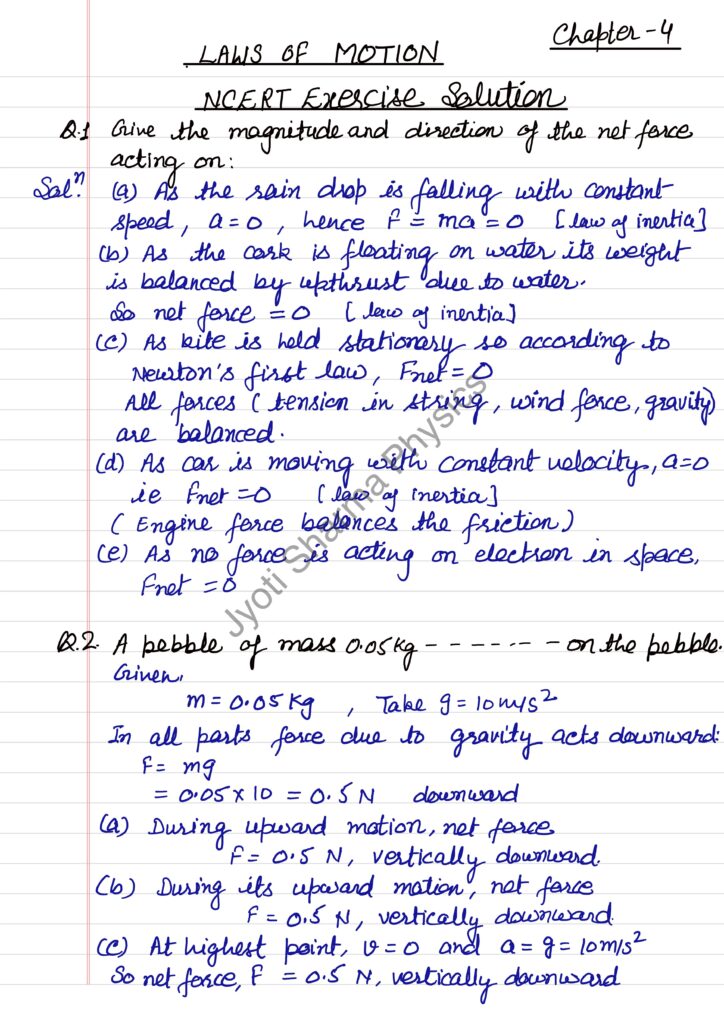 Chapter-4
LAWS OF MOTION
NCERT Exercise Solution
Q.1 Give the magnitude and direction of the net force
acting on:
Solⁿ. (a) As the rain drop is falling with constant
speed, a=0, hence F = ma = 0 [law of inertia]
(b) As the cork is floating on water its weight
is balanced by upthrust due to water.
So net force = 0 [law of inertia]
(c) As kite is held stationary so according to
Newton's first law, Fnet = 0
All forces (tension in string, wind force, gravity)
are balanced.
(d) As car is moving with constant velocity, a=0
ie Fnet = 0 [law of inertia]
(Engine force balances the friction)
(e) As no force is acting on electron in space,
Fnet = 0
Jyoti Sharma Physics
Q.2. A pebble of mass 0.05kg - - - - - - - on the pebble.
Given,
m = 0.05 kg, Take g = 10 m/s²
In all parts force due to gravity acts downward.
F = mg
= 0.05 × 10 = 0.5 N downward
(a) During upward motion, net force
F = 0.5 N, vertically downward.
(b) During its upward motion, net force
F = 0.5 N, vertically downward.
(c) At highest point, v = 0 and a = g = 10 m/s²
So net force, F = 0.5 N, vertically downward